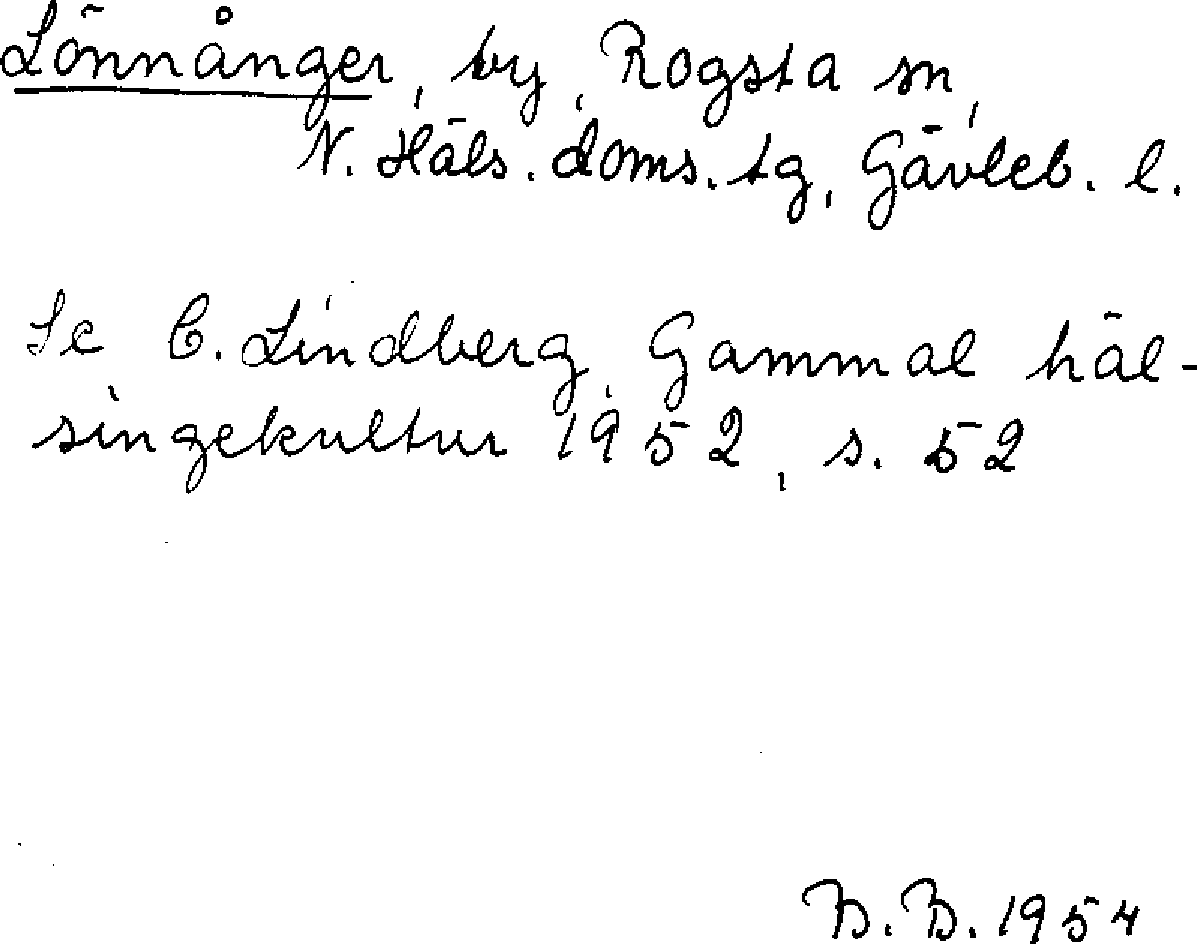 Lönnånger, by, Rogsta sn,
N. Häls. doms. tg, Gävleb. l.
Se C. Lindberg, Gammal häl-
singekultur 1952, s. 52
B. B. 1954